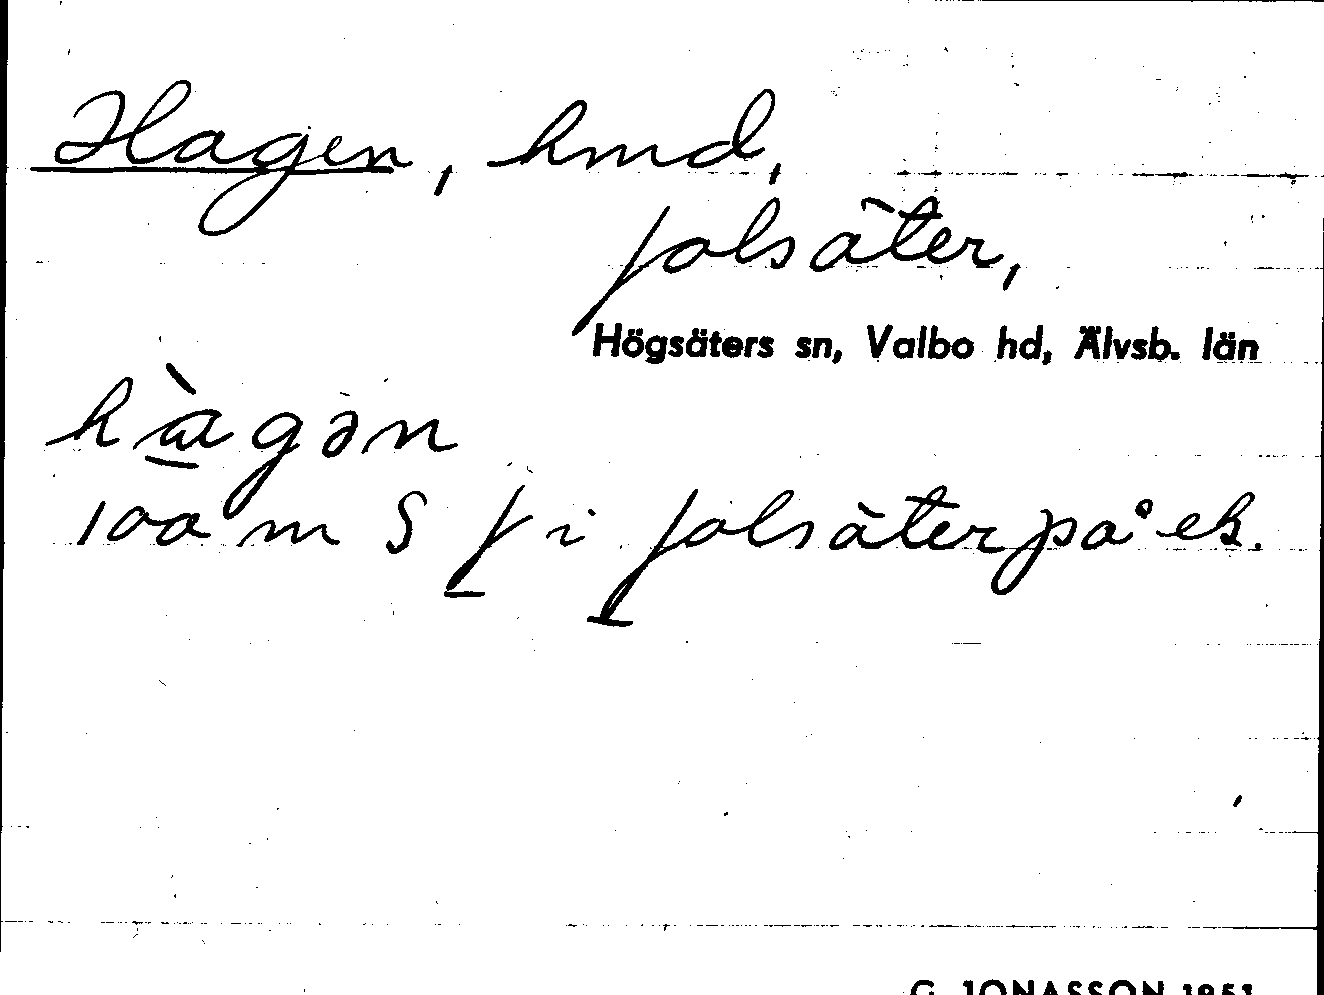 Hagen, hmd,
Jolsäter,
Högsäters sn, Valbo hd, Älvsb. län
hàgən
100 m S J i Jolsäter på ek.
G. JONASSON 1951